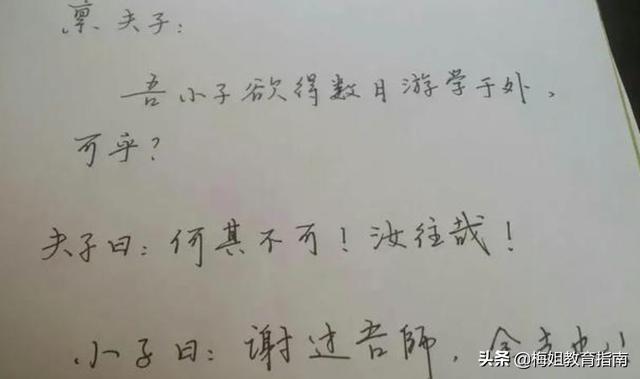 禀夫子：
吾小子欲得数月游学于外，
可乎？
夫子曰：何其不可！汝往哉！
小子曰：谢过吾師，余去也
头条 @梅姐教育指南